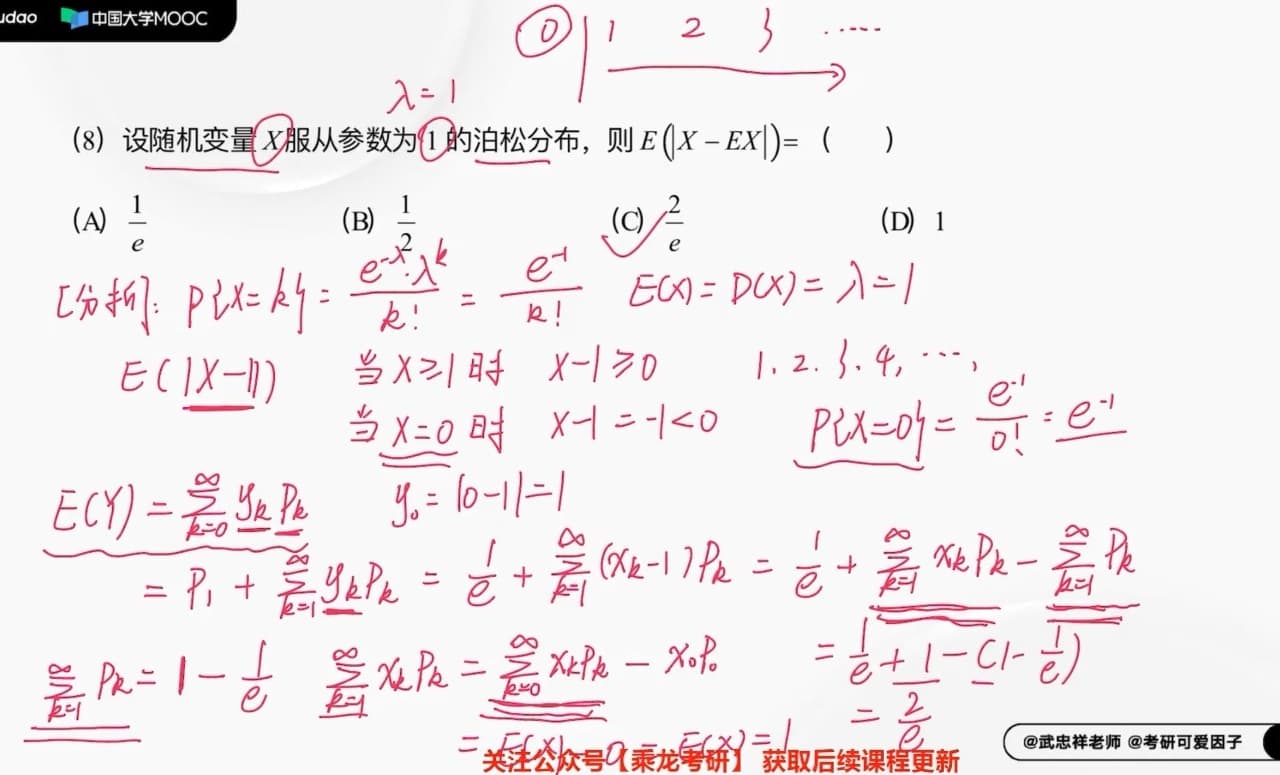 udao 中国大学MOOC
0 1 2 3 ……
λ=1
(8) 设随机变量 X 服从参数为 1 的泊松分布，则 E(|X − EX|)= (    )
(A) 1/e (B) 1/2 (C) 2/e (D) 1
[分析]: P{X=k} = e^-λ·λ^k/k! = e^-1/k! E(X) = D(X) = λ = 1
E(|X-1|) 当 X≥1 时 X-1≥0 1, 2, 3, 4, …,
当 X=0 时 X-1=-1<0 P{X=0} = e^-1/0! = e^-1
E(Y) = ∑_{k=0}^∞ y_k P_k y_0 = |0-1| = 1
= P_1 + ∑_{k=1}^∞ y_k P_k = 1/e + ∑_{k=1}^∞ (x_k-1)P_k = 1/e + ∑_{k=1}^∞ x_k P_k - ∑_{k=1}^∞ P_k
∑_{k=1}^∞ P_k = 1 - 1/e ∑_{k=1}^∞ x_k P_k = ∑_{k=0}^∞ x_k P_k - x_0 P_0 = 1/e + 1 - (1 - 1/e)
= E(X) - 0 = E(X) = 1 = 2/e
@武忠祥老师 @考研可爱因子
关注公众号【乘龙考研】 获取后续课程更新